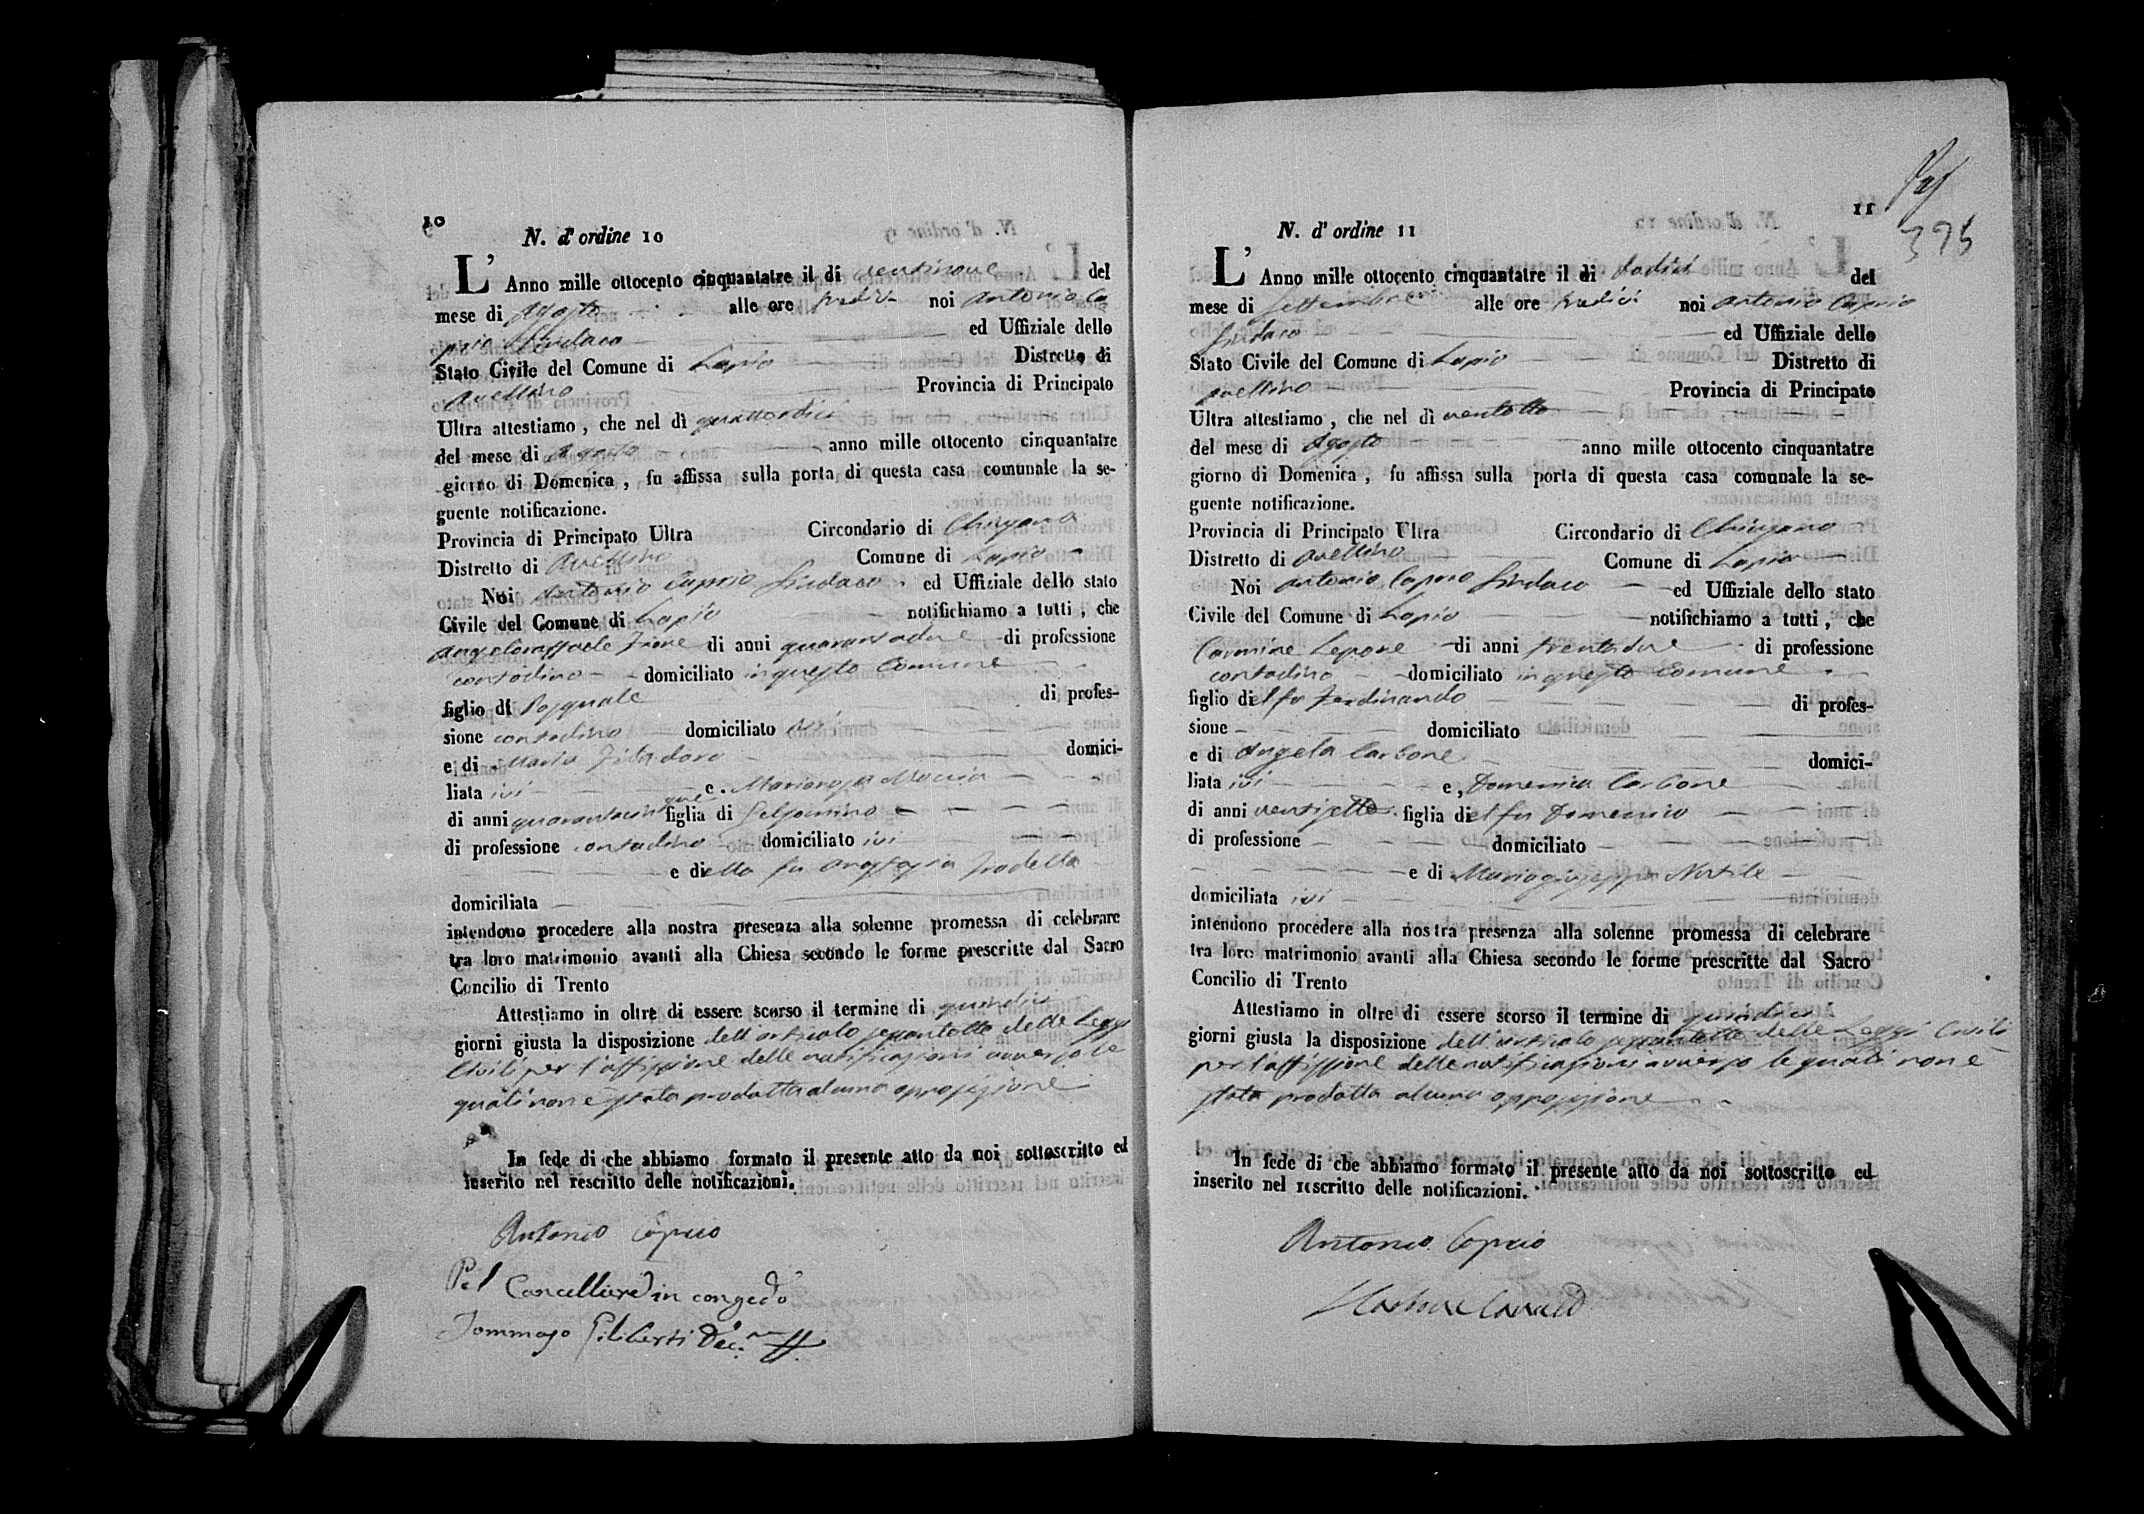 10
N. d' ordine 10
L' Anno mille ottocento cinquantatre il di ventinove del
mese di Agosto alle ore tredici noi Antonio Ca
prio Sindaco ed Uffiziale dello
Stato Civile del Comune di Lapio Distretto di
Avellino Provincia di Principato
Ultra attestiamo , che nel dì quattordici
del mese di Agosto anno mille ottocento cinquantatre
giorno di Domenica , fu affissa sulla porta di questa casa comunale la se-
guente notificazione.
Provincia di Principato Ultra Circondario di Chiusano
Distretto di Avellino Comune di Lapio
Noi Antonio Caprio Sindaco ed Uffiziale dello stato
Civile del Comune di Lapio notifichiamo a tutti , che
Angeloraffaele di anni quarantadue di professione
contadino domiciliato in questo Comune
figlio di Pasquale di profes-
sione contadino domiciliato ivi
e di Maria domici-
liata ivi e Mariarosa
di anni quarantacinque figlia di Gelsomino
di professione contadino domiciliato ivi
e di ella fu
domiciliata
intendono procedere alla nostra presenza alla solenne promessa di celebrare
tra loro matrimonio avanti alla Chiesa secondo le forme prescritte dal Sacro
Concilio di Trento
Attestiamo in oltre di essere scorso il termine di quindici
giorni giusta la disposizione dell'articolo sessantotto delle Leggi
Civili per l'affissione delle notificazioni avverso le
quali non e stata prodotta alcuna opposizione
In fede di che abbiamo formato il presente atto da noi sottoscritto ed
inserito nel rescritto delle notificazioni.
Antonio Caprio
Pel Cancelliere in congedo
Tommaso Filiberti
11
375
N. d' ordine 11
L' Anno mille ottocento cinquantatre il di dodici del
mese di Settembre alle ore tredici noi Antonio Caprio
Sindaco ed Uffiziale dello
Stato Civile del Comune di Lapio Distretto di
Avellino Provincia di Principato
Ultra attestiamo , che nel dì ventotto
del mese di Agosto anno mille ottocento cinquantatre
giorno di Domenica , fu affissa sulla porta di questa casa comunale la se-
guente notificazione.
Provincia di Principato Ultra Circondario di Chiusano
Distretto di Avellino Comune di Lapio
Noi Antonio Caprio Sindaco ed Uffiziale dello stato
Civile del Comune di Lapio notifichiamo a tutti , che
Carmine Lepore di anni trentadue di professione
contadino domiciliato in questo Comune
figlio di el fu Ferdinando di profes-
sione domiciliato
e di Angela Carbone domici-
liata ivi e, Domenica Carbone
di anni ventisette figlia di el fu Domenico
di professione domiciliato
e di Mariagiuseppa
domiciliata ivi
intendono procedere alla nostra presenza alla solenne promessa di celebrare
tra loro matrimonio avanti alla Chiesa secondo le forme prescritte dal Sacro
Concilio di Trento
Attestiamo in oltre di essere scorso il termine di quindici
giorni giusta la disposizione dell'articolo sessantotto delle Leggi Civili
per l'affissione delle notificazioni avverso le quali non e
stata prodotta alcuna opposizione
In fede di che abbiamo formato il presente atto da noi sottoscritto ed
inserito nel rescritto delle notificazioni.
Antonio Caprio